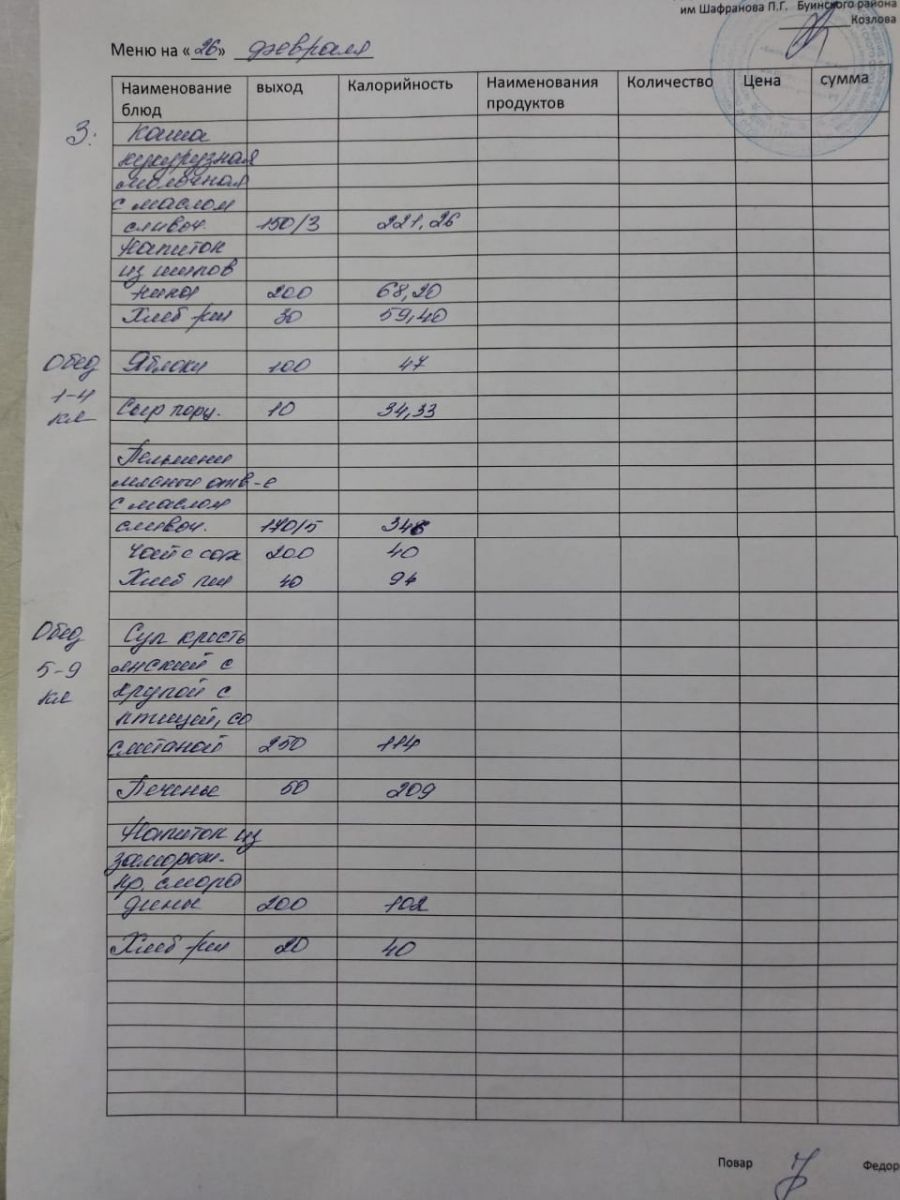 им Шафранова П.Г. Буинского района
Козлова
Меню на «26» февраля
Наименование блюд выход Калорийность Наименования продуктов Количество Цена сумма
З: Каша
кукурузная
молочная
с маслом
сливоч. 150/3 221,26
Напиток
из шипов
ника 200 68,20
Хлеб рж 30 59,40
Обед Яблоки 100 47
1-4
кл Сыр порц. 10 34,33
Пельмени
мясные отв-е
с маслом
сливоч. 170/5 346
Чай с сах 200 40
Хлеб пш 40 94
Обед Суп кресть
5-9 янский с
кл крупой с
птицей, со
сметаной 250 114
Печенье 50 209
Напиток из
заморож.
кр. сморо
дины 200 102
Хлеб рж 20 40
Повар Федор